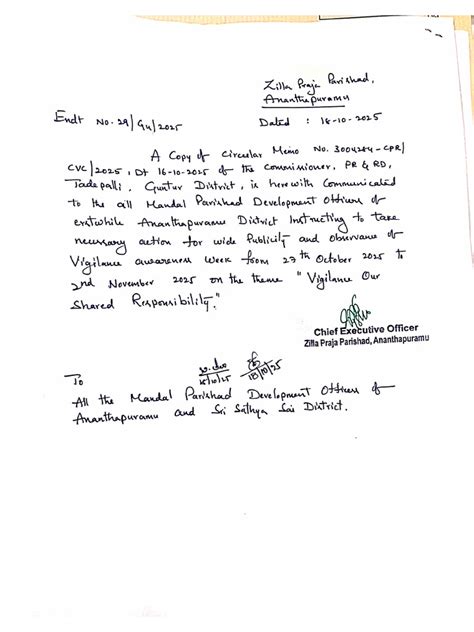 Zilla Praja Parishad,
Ananthapuramu
Endt No. 29/G4/2025 Dated : 18-10-2025
A Copy of Circular Memo No. 3004284-CPR/
CVC/2025, Dt 16-10-2025 of the Commissioner, PR & RD,
Tadepalli, Guntur District, is herewith Communicated
to the all Mandal Parishad Development Officers of
erstwhile Ananthapuramu District Instructing to take
necessary action for wide Publicity and observance of
Vigilance awareness Week from 27th October 2025 to
2nd November 2025 on the theme " Vigilance Our
Shared Responsibility."
Chief Executive Officer
Zilla Praja Parishad, Ananthapuramu
18/10/25 18/10/25
To
All the Mandal Parishad Development Officers of
Ananthapuramu and Sri Sathya Sai District.